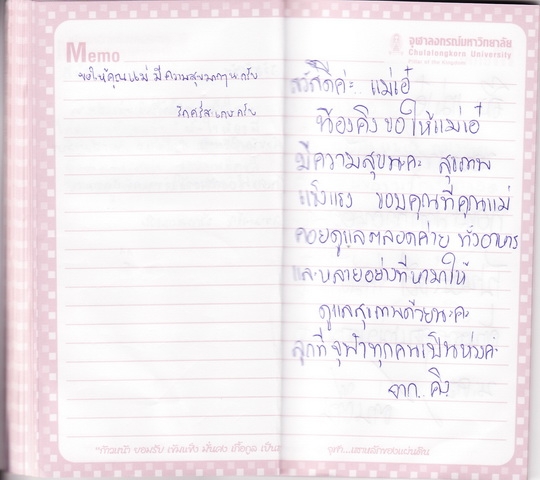 Memo
ขอให้คุณแม่ มีความสุขมากๆนะครับ
รักคร๊าบบบ
จุฬาลงกรณ์มหาวิทยาลัย
Chulalongkorn University
Pillar of the Kingdom
สวัสดีค่ะ.. แม่เอ๋
น้องคิง ขอให้แม่เอ๋
มีความสุขนะคะ สุขภาพ
แข็งแรง ขอบคุณที่คุณแม่
คอยดูแลตลอดค่าย ทั้งอาหาร
และหลายอย่างที่หามาให้
ดูแลสุขภาพด้วยนะคะ
ลูกที่จุฬาทุกคนเป็นห่วงค่ะ
จาก.. คิง
"ก้าวหน้า ยอมรับ เข้มแข็ง มั่นคง เกื้อกูล เป็น
จุฬา...